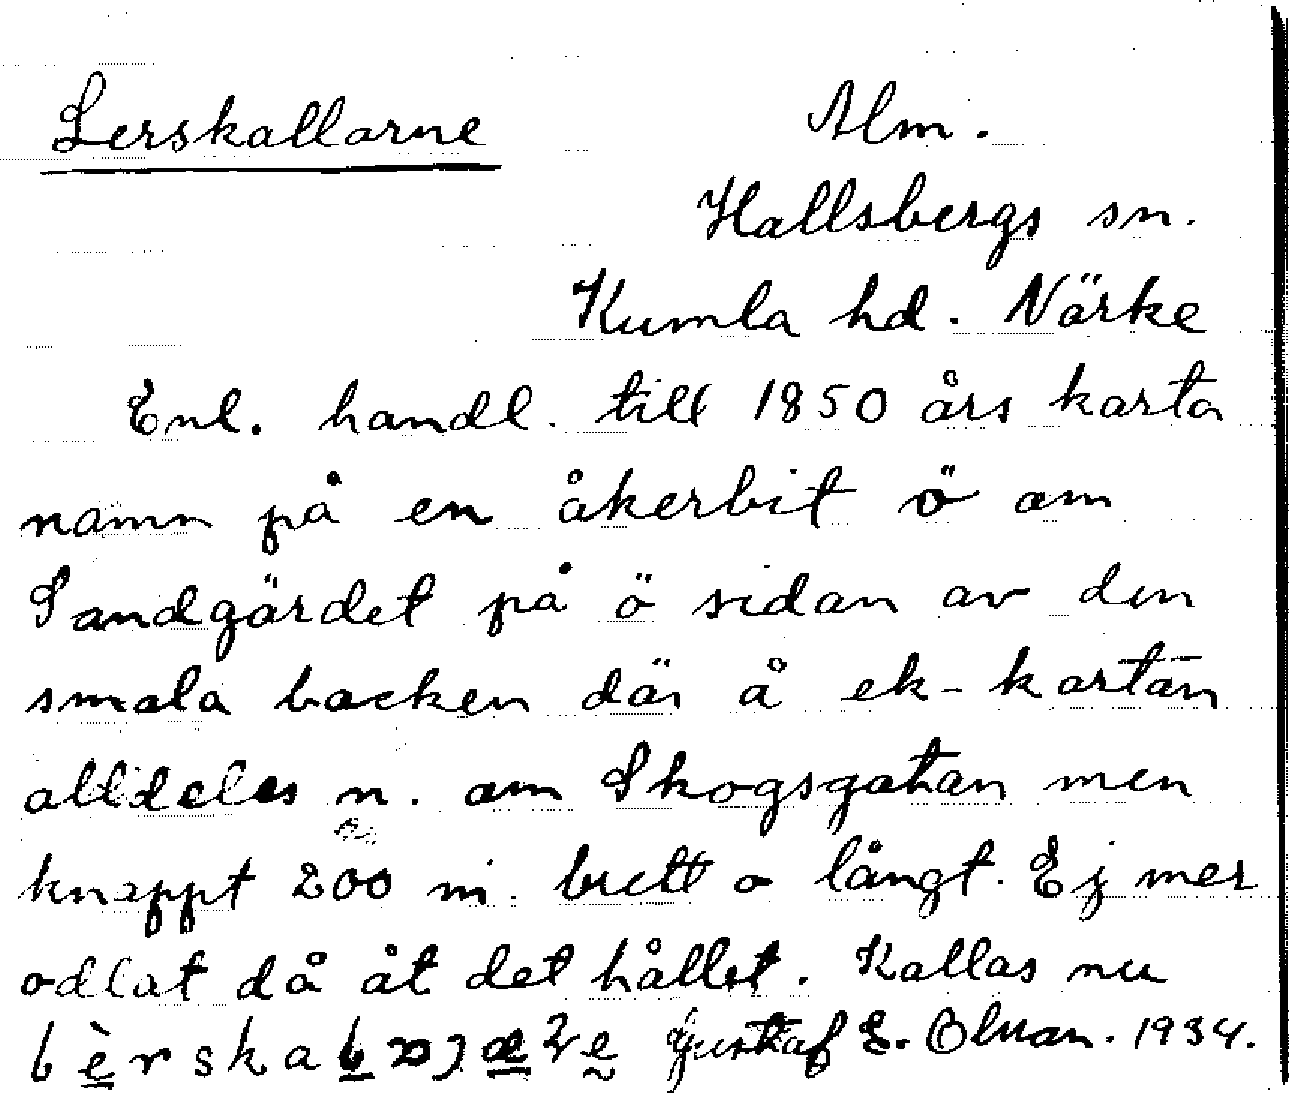 Lerskallarne
Alm.
Hallsbergs sn.
Kumla hd. Närke
Enl. handl. till 1850 års karta
namn på en åkerbit ö om
Sandgärdet på ö sidan av den
smala backen där å ek-kartan
alldeles n. om Skogsgatan men
knappt 200 m. brett o långt. Ej mer
odlat då åt det hållet. Kallas nu
Gustaf E. Olsson. 1934.